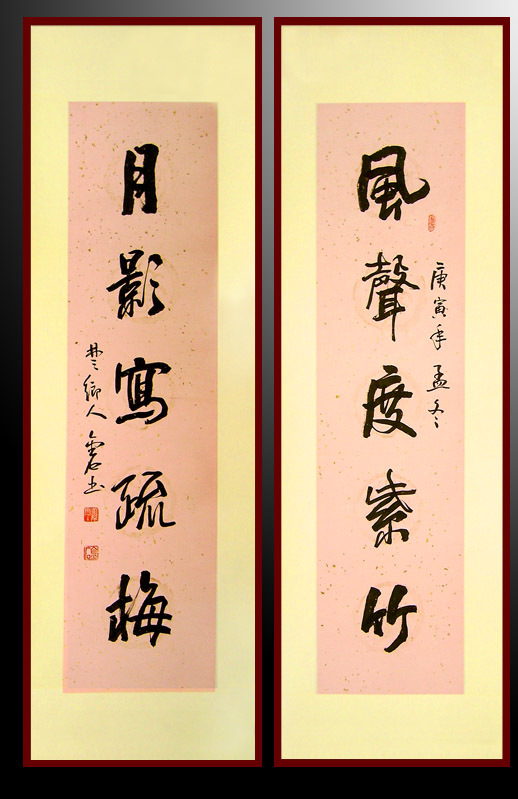 風聲度紫竹
庚寅年孟冬
月影寫疏梅
楚鄉人
書